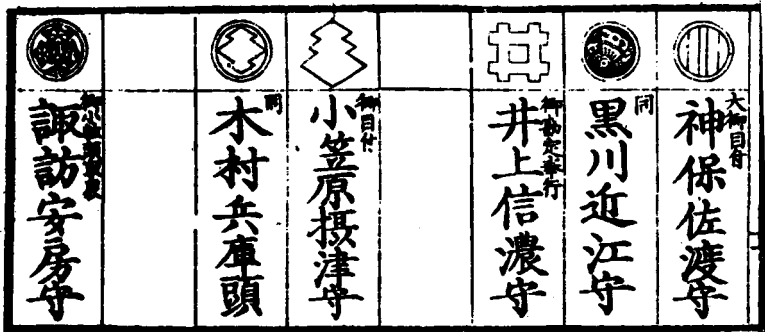 大御目付
神保佐渡守
同
黒川近江守
御勘定奉行
井上信濃守
御目付
小笠原摂津守
同
木村兵庫頭
諏訪安房守